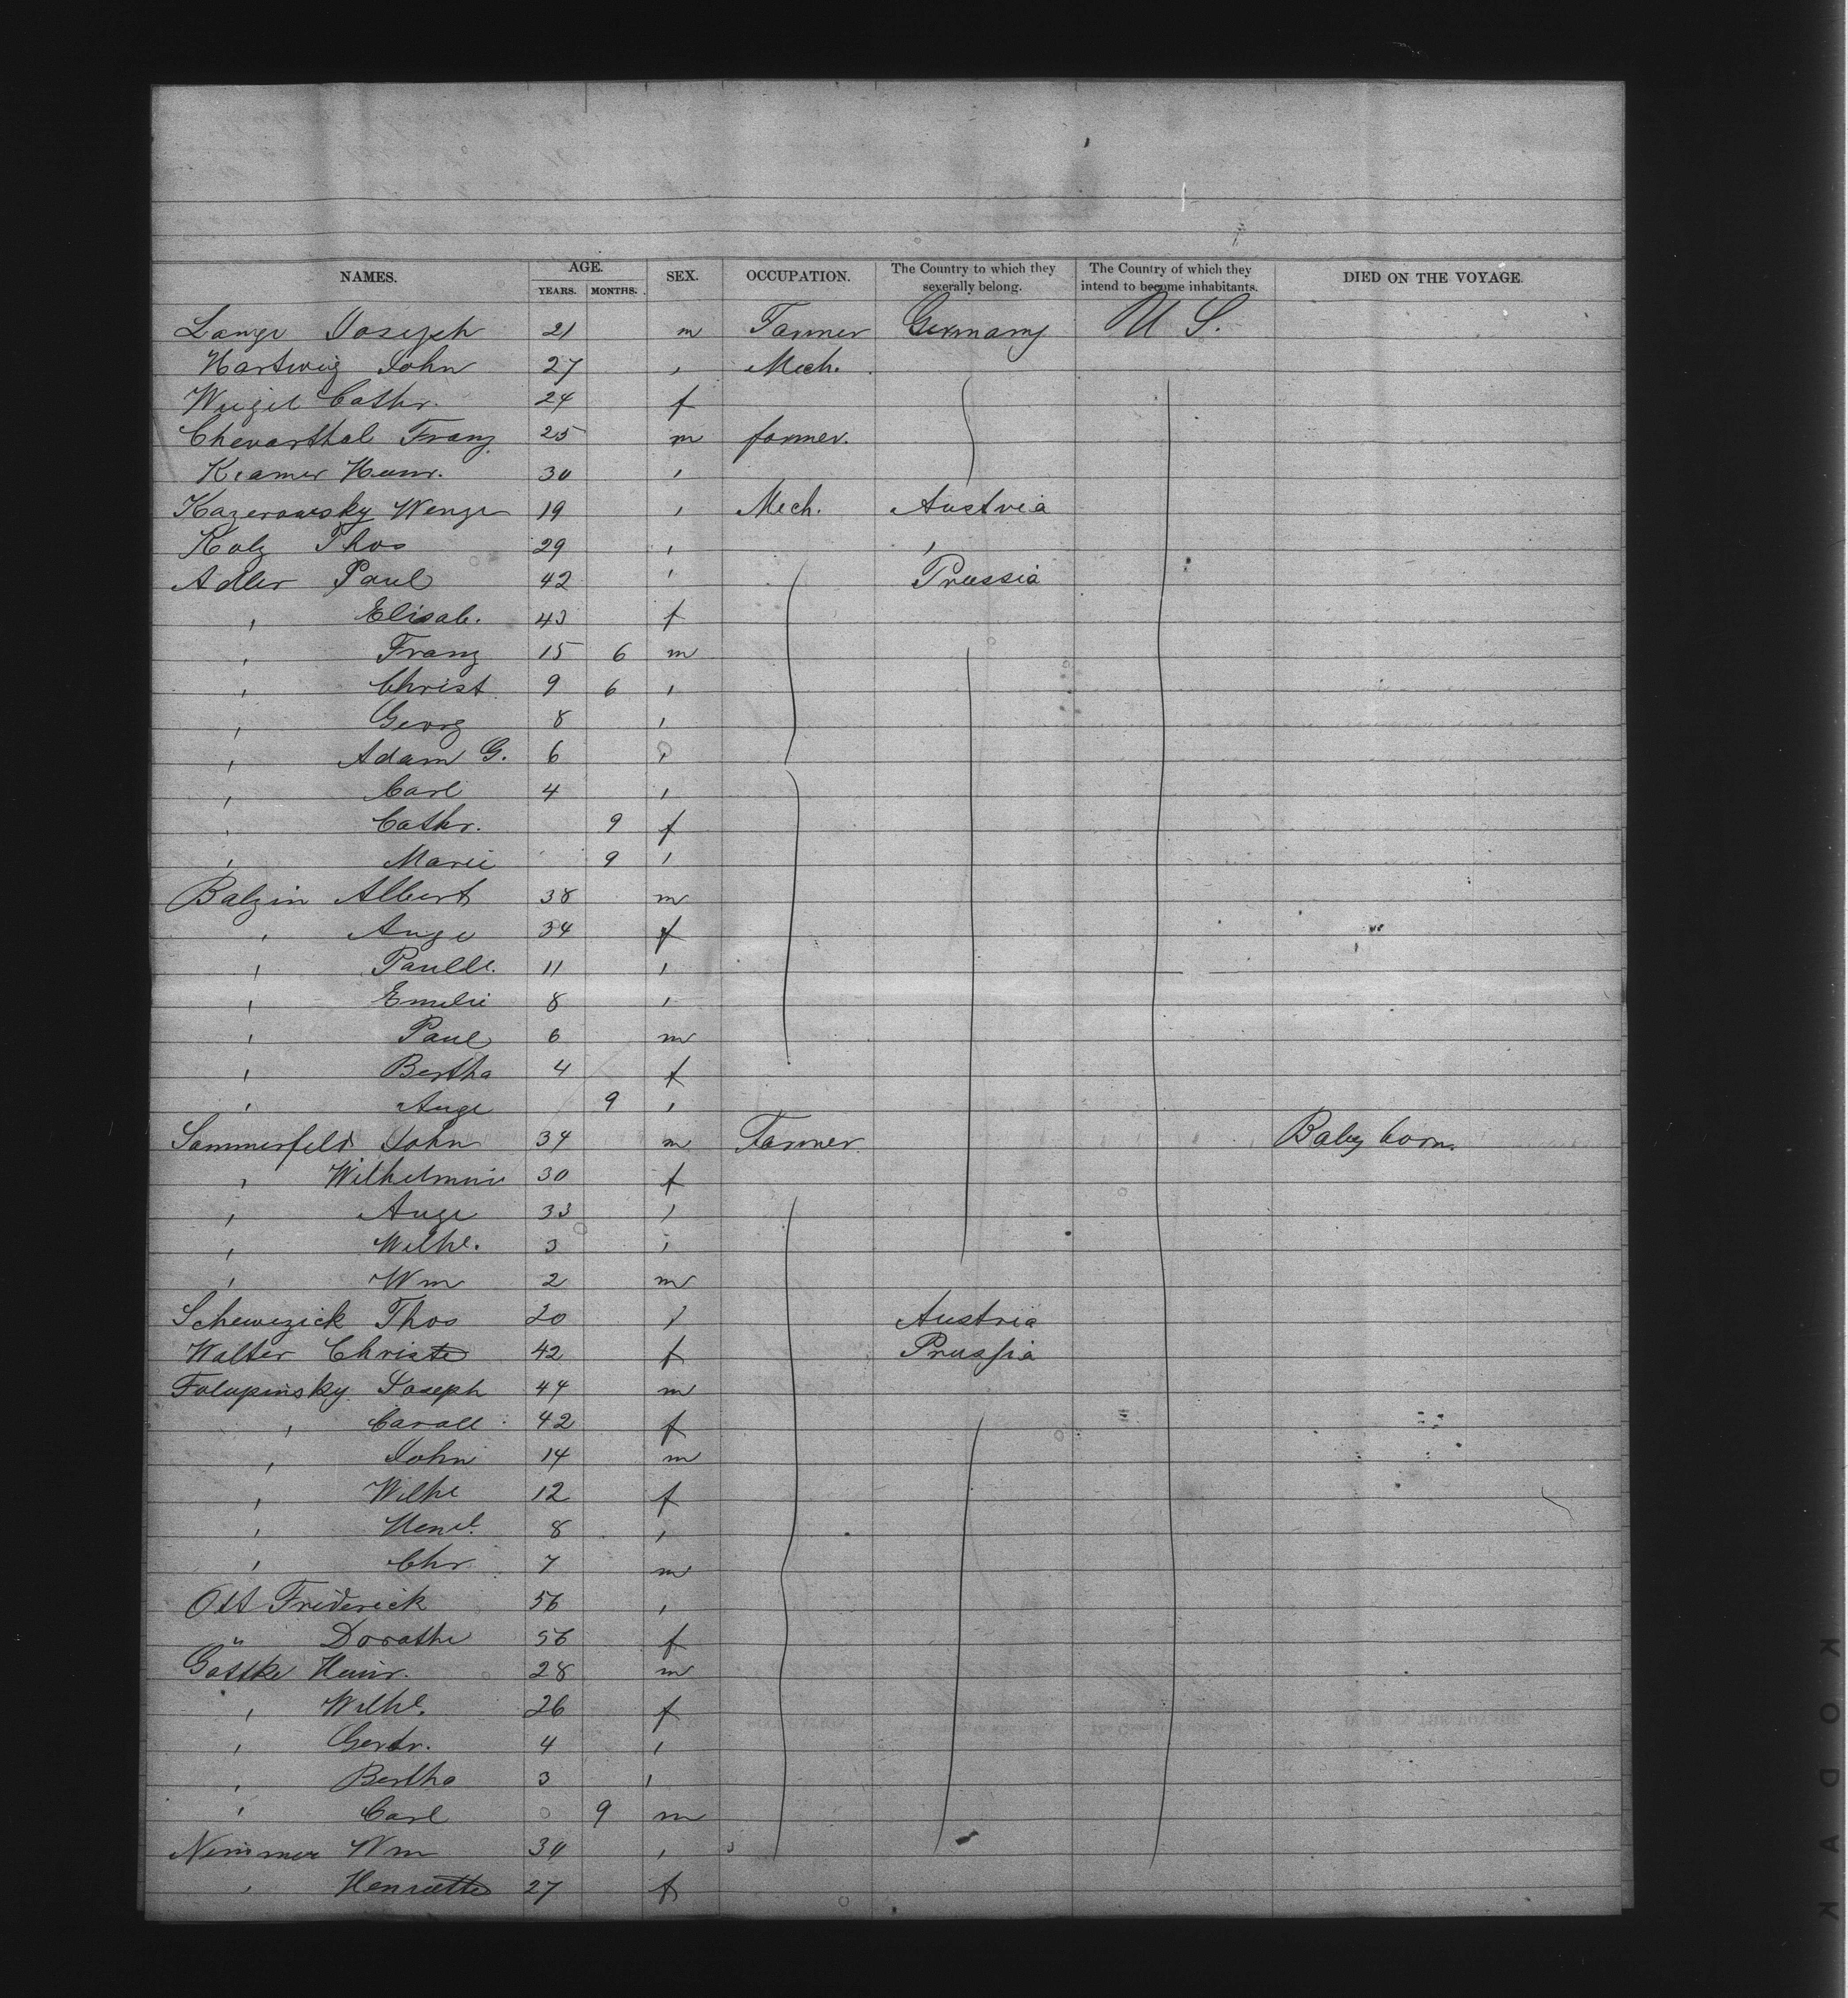 NAMES. AGE. YEARS. MONTHS. SEX. OCCUPATION. The Country to which they severally belong. The Country of which they intend to become inhabitants. DIED ON THE VOYAGE.
Lange Joseph 21 m Farmer Germany U S.
Hartwig John 27 , Mech.
Weigel Cathr. 24 f
Chevarthal Franz 25 m farmer.
Kramer Heinr. 30 ,
Kazerowsky Wenze 19 , Mech. Austria
Kolz Thos 29 , ,
Adler Paul 42 , Prussia
, Elisab. 43 f
, Franz 15 6 m
, Christ. 9 6 ,
, Georg 8 ,
, Adam G. 6 ,
, Carl 4 ,
, Cathr. 9 f
, Marie 9 ,
Balzin Albert 38 m
, Auge 34 f
, Paulle. 11 ,
, Emelie 8 ,
, Paul 6 m
, Bertha 4 f
, Auge 9 ,
Sommerfeld John 34 m Farmer Baby born.
, Wilhelmine 30 f
, Auge 33 ,
, Wilhe. 3 ,
, Wm 2 m
Schewezick Thos 20 , Austria
Walter Christe 42 f Prussia
Folupinsky Joseph 44 m
, Caroll 42 f
, John 14 m
, Wilhe 12 f
, Henl. 8 ,
, Chr. 7 m
Ott Friderick 56 ,
" Dorothe 56 f
Gottke Heinr. 28 m
, Wilhe. 26 f
, Gertr. 4 ,
, Bertha 3 ,
, Carl 0 9 m
Nimmer Wm 30 ,
, Henriette 27 f
KODAK